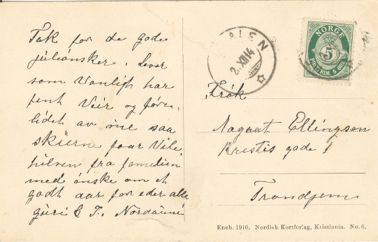 Tak for de gode
juliønsker. hver
som Vanligt har
pent Veir og føre.
lidet av sne saa
skierne faar Vile
hilsen fra familien
med ønske om et
godt aar for eder alle
guri & T.
2.XII.14
NORGE
5
Frøk
Aagaat Ellingsen
gade 1
Trondjem
Eneb. 1910. Nordisk Kortforlag, Kristiania. No. 6.